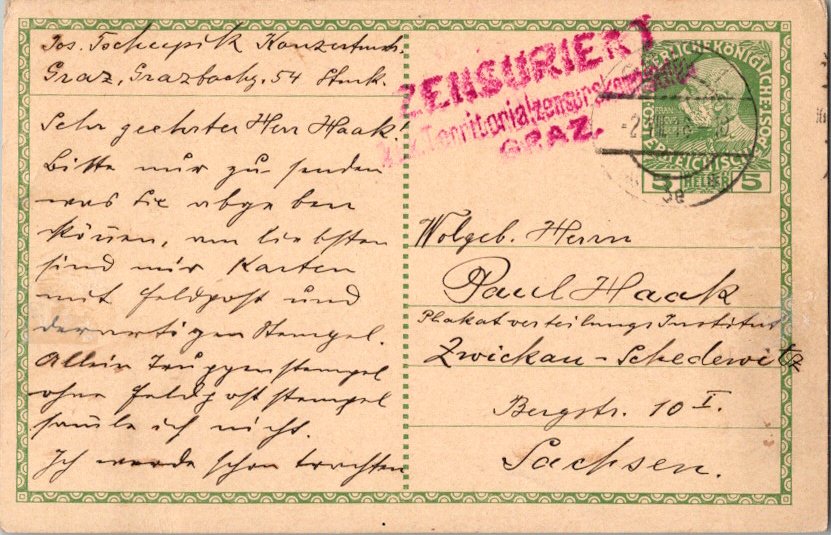 Jos. Tschepik Konzertm.
Graz, Grazbachg. 54 Stmk.
Sehr geehrter Herr Haak!
Bitte nur zu senden
was Sie abgeben
können, am liebsten
sind mir Karten
mit Feldpost und
derartigen Stempel.
Allein Truppenstempel
ohne Feldpoststempel
samle ich nicht.
Ich werde schon trachten
ZENSURIERT
K.u.k. Territorialzensurskommission
GRAZ.
5 HELLER 5
Wolgeb. Herrn
Paul Haak
Plakatverteilungs Institut
Zwickau - Schedewitz
Bergstr. 10 I.
Sachsen.